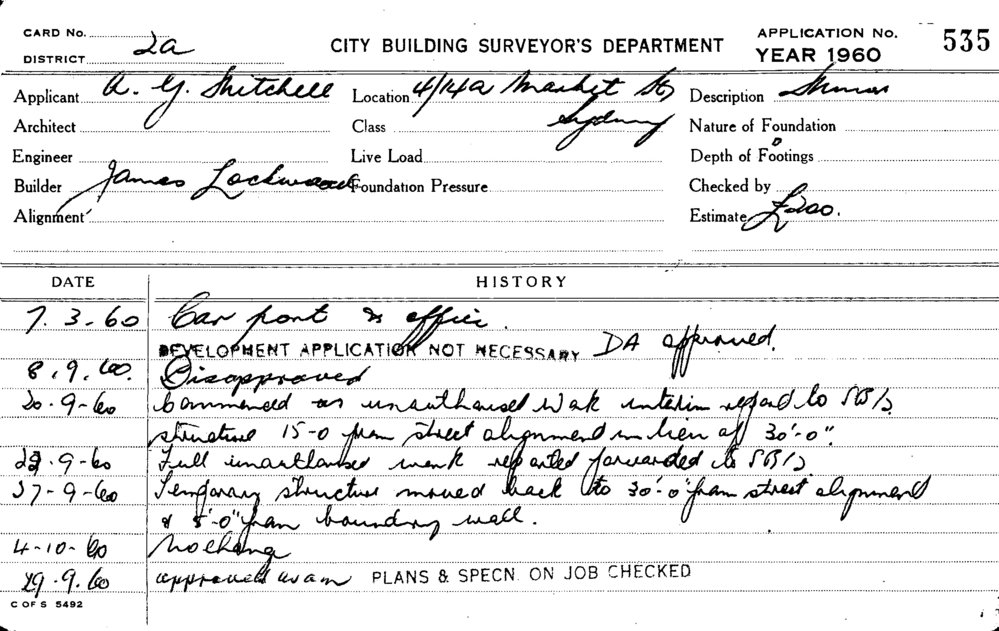 CARD No. CITY BUILDING SURVEYOR'S DEPARTMENT APPLICATION No. 535
DISTRICT 2a YEAR 1960
Applicant A. G. Mitchell Location 4/14a Market St Description
Architect Class Sydney Nature of Foundation
Engineer Live Load Depth of Footings
Builder James Lockwood Foundation Pressure Checked by
Alignment Estimate £200.
DATE HISTORY
7.3.60 Car port & office.
DEVELOPMENT APPLICATION NOT NECESSARY DA approved.
8.9.60. Disapproved
20.9.60 Commenced as unauthorised work interim report to SBI/s
structure 15-0 from street alignment in lieu of 30'-0".
22.9.60 Full unauthorised work reported forwarded to SBI/s
27-9-60 Temporary structure moved back to 30'-0" from street alignment
& 5'-0" from boundary wall.
4-10-60 No change
29.9.60 approved PLANS & SPECN. ON JOB CHECKED
C OF S 5492